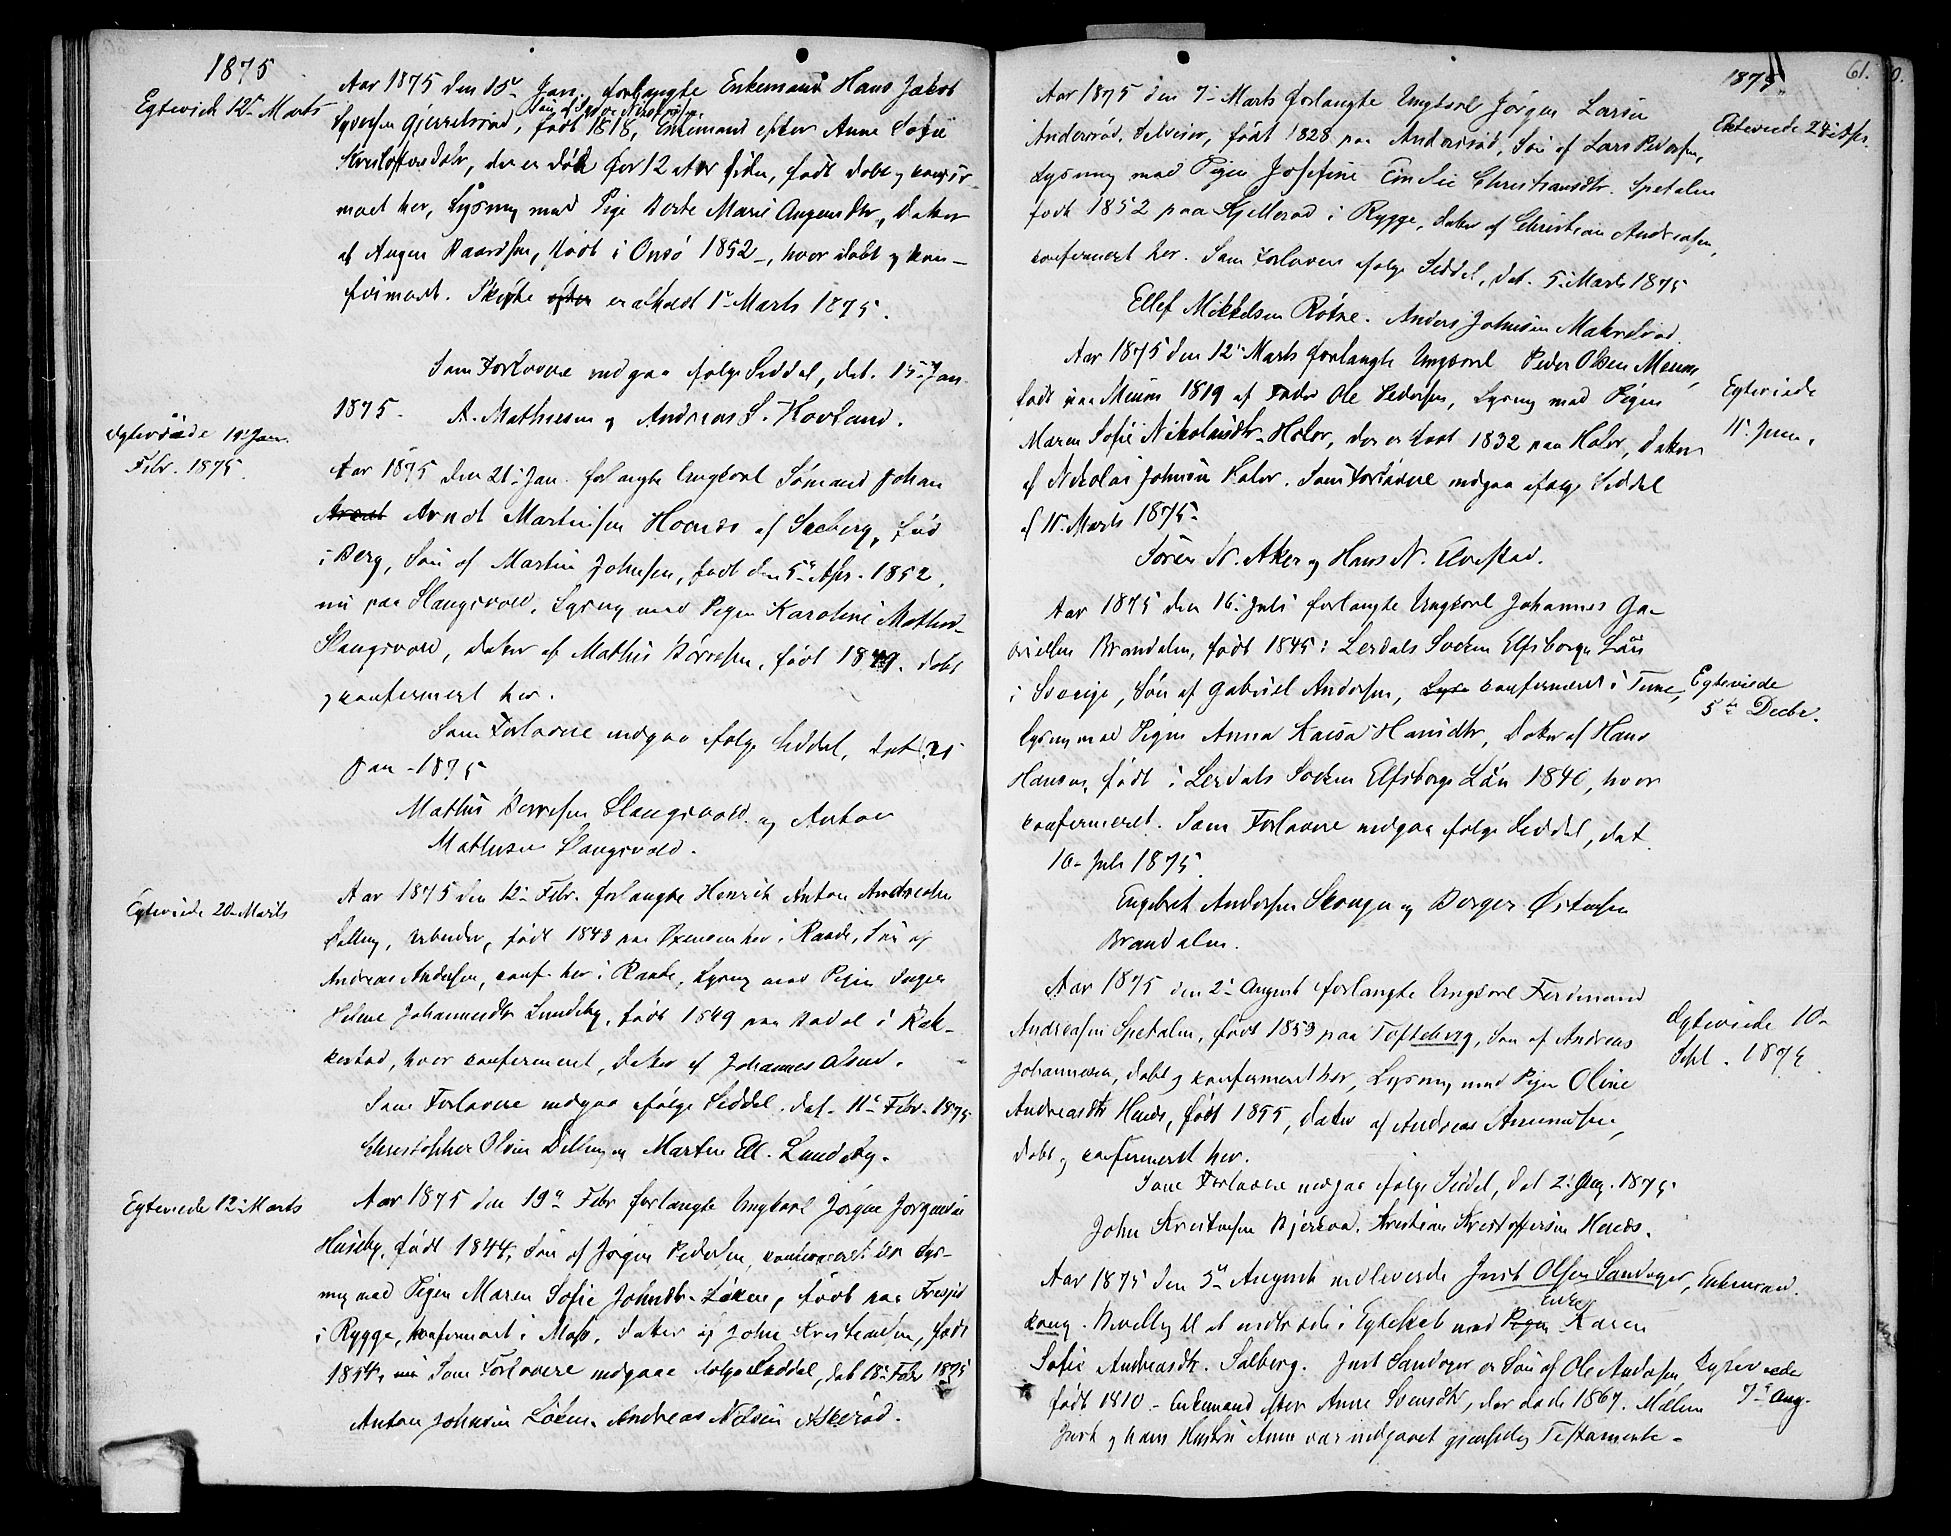 1875
Egteviede 12te Marts
Aar 1875 den 15de Jan. forlangte Enkemand Hans Jakob
Syversen Gjerrelsrød, født 1818, Enkemand efter Anne Sofie
Kristofersdatr, der er død for 12 Aar siden, født døbt og konfir-
meret her, Lysning med Pige Berte Marie Augensdtr, Datter
af Augen Baardsen, født i Onsø 1852, hvor døbt og kon-
firmeret. Skifte efter er afholdt 1te Marts 1875.
Som Forlovere indgaa ifølge Seddel, dat. 15de Jan.
1875. A. Mathiesen og Andreas S. Kovland.
Egteviede 19 Jan.
Febr. 1875.
Aar 1875 den 21. Jan. forlangte Ungkarl Sømand Johan
Arent Arndt Martinsen Hornes af Skeberg, født
i Berg, Søn af Martin Johnsen, født den 5te Apr. 1852,
nu paa Slangsvold, Lysning med Pigen Karoline Mathisd.
Slangsvold, datter af Mathis Børresen, født 1849. døbt
og konfermert her.
Som Forlovere indgaa ifølge Seddel, dat. 21
Jan - 1875
Mathis Børresen Slangsvold og Anton
Mathisen Slangsvold.
Egteviede 20 Marts
Aar 1875 den 12te Febr. forlangte Henrik Anton Andreasen
Dilling, Arbeider, født 1843 paa i Raade, Søn af
Andreas Andersen, conf. her i Raade, Lysning med Pigen Inger
Helene Johannesdtr Lundeby, født 1849 paa Dadal i Rak-
kestad, hvor confermeret, Datter af Johannes Olsen.
Som Forlovere indgaa ifølge Seddel dat. 11te Febr. 1875
Christopher Olsen Dilling og Martin Ell. Lundeby.
Egteviede 12te Marts
Aar 1875 den 19de Febr forlangte Ungkarl Jørgen Jørgensen
Huseby, født 1844, Søn af Jørgen Pedersen, confermeret her Lys-
ning med Pigen Maren Sofie Johnsdtr. Løken, født paa
i Rygge, konfermert i Moss, Datter af John Kristensen, født
1854, nu Som Forlovere indgaa ifølge Seddel, dat 18de Febr 1875
Anton Johnsen Løken. Andreas Nilsen Askerød.
61.
1875
Aar 1875 den 7de Marts forlangte Ungkarl Jørgen Larsen
Andersrød, Selveier, født 1828 paa Andersrød, Søn af Lars Pedersen,
Lysning med Pigen Josefine Emilie Christiansdtr. Spetalen
født 1852 paa Kjellerød i Rygge, datter af Christian Andreasen,
confermert her. Som Forlovere ifølge Seddel, dat. 5te Marts 1875
Ellef Mikkelsen Røtne. Anders Johnsen
Aar 1875 den 12te Marts forlangte Ungkarl Peder Olsen Meum,
født paa Meum 1819 af Fader Ole Pedersen, Lysning med Pigen
Maren Sofie Nikolaisdtr. Haler, der er født 1832 paa Haler, Datter
af Nikolai Johnsen Haler. Som Forlovere indgaa ifølge Seddel
af 11. Marts 1875.
Egteviede
11. Juni.
Søren N. Aker og Hans N. Elvestad.
Aar 1875 den 16. Juli forlangte Ungkarl Johannes Ga-
brielsen Brandalen, født 1845 i Lerdals Socken Elfsborgs Län
i Sverige, Søn af Gabriel Andersen, Lysn confermeret i Tune,
Lysning med Pigen Anna Kaisa Hansdtr, Datter af Hans
Hansen, født i Lerdals Socken Elfsborgs Län 1840, hvor
confermeret. Som Forlovere indgaa ifølge Seddel, dat.
10. Juli 1875.
Egteviede
5te Decbr.
Engebret Andersen Skougen og Børger Østensen
Brandalen.
Aar 1875 den 2. August forlangte Ungkarl Ferdinand
Andreasen Spetalen, født 1853 paa Tofteberg, Søn af Andreas
Johannesen, døbt og confermeret her, Lysning med Pigen Oline
Andreasdtr Henes, født 1855, datter af Andreas
døbt og confermeret her.
Egteviede 10.
Sept. 1875.
Som Forlovere indgaa ifølge Seddel, dat 2. Aug. 1875
John Kristensen Kristian Kristoffersen Henes.
Aar 1875 den 5te August indleverede Just Olsen Sandager, Enkemand,
kong. Bevilling til at indtræde i Egteskab med Pigen Enke Karen
Sofie Andreasdtr. Solberg. Just Sandager er Søn af Ole Andersen,
født 1810 - Enkemand efter Anne Svensdtr, der døde 1867. Mellem
Just og hans Hustru Anne var indgaaet gjensidig Testamente.
Egteviede
7de Aug.